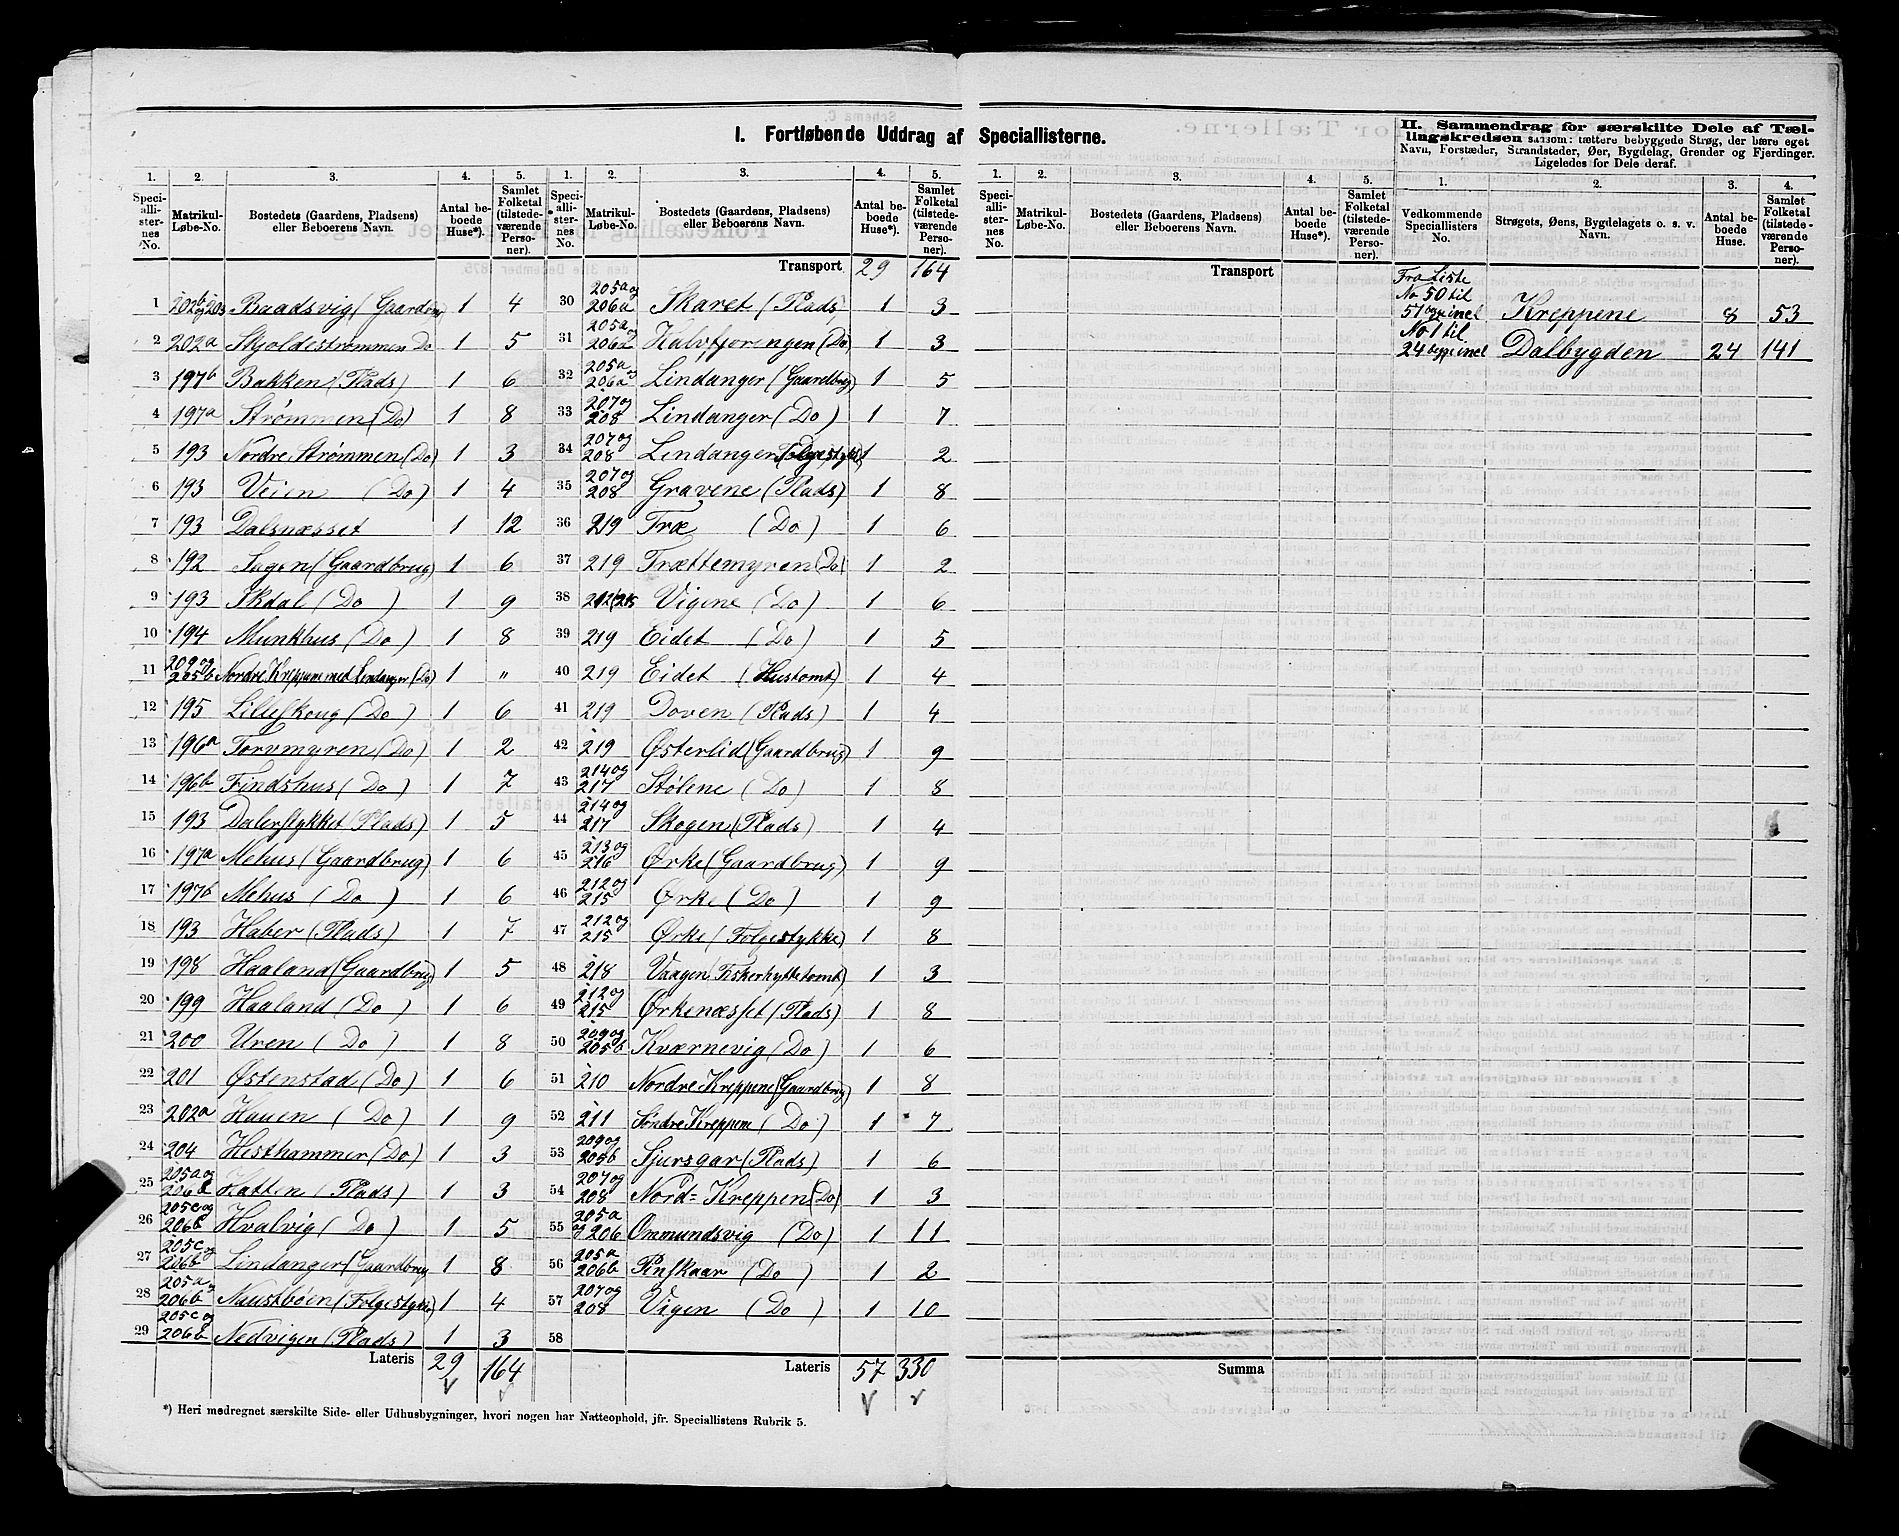 I. Fortløbende Uddrag af Speciallisterne.
II. Sammendrag for særskilte Dele af Tællingskredsen saasom: tættere bebyggede Strøg, der bære eget
Navn, Forstæder, Strandsteder, Øer, Bygdelag, Grender og Fjerdinger.
Ligeledes for Dele deraf.
1. 2. 3. 4. 5. 1. 2. 3. 4. 5. 1. 2. 3. 4. 5. 1. 2. 3. 4.
Speciallisternes No. Matrikul-Løbe-No. Bostedets (Gaardens, Pladsens) eller Beboerens Navn. Antal beboede Huse*). Samlet Folketal (tilstedeværende Personer).
Speciallisternes No. Matrikul-Løbe-No. Bostedets (Gaardens, Pladsens) eller Beboerens Navn. Antal beboede Huse*). Samlet Folketal (tilstedeværende Personer).
Speciallisternes No. Matrikul-Løbe-No. Bostedets (Gaardens, Pladsens) eller Beboerens Navn. Antal beboede Huse*). Samlet Folketal (tilstedeværende Personer).
Vedkommende Speciallisters No. Strøgets, Øens, Bygdelagets o. s. v. Navn. Antal beboede Huse. Samlet Folketal (tilstedeværende Personer).
1 202b og 203 Baadsvig (Gaardbrug) 1 4
2 202a Skjoldestrømmen Do 1 5
3 197b Bakken (Plads) 1 6
4 197a Strømmen (Do) 1 8
5 193 Nordre Strømmen (Do) 1 3
6 193 Veien (Do) 1 4
7 193 Dalsnæsset 1 12
8 192 Sagen (Gaardbrug) 1 6
9 193 Skdal (Do) 1 9
10 194 Munkhus (Do) 1 8
11 209 og 205b Nordre Kreppene med Lindanger (Do) 1 "
12 195 Lilleskoug (Do) 1 6
13 196a Torvmyren (Do) 1 2
14 196b Findshus (Do) 1 7
15 193 Dalerstykket (Plads) 1 5
16 197a Mehus (Gaardbrug) 1 6
17 197b Mehus (Do) 1 6
18 193 Haber (Plads) 1 7
19 198 Haaland (Gaardbrug) 1 5
20 199 Haaland (Do) 1 6
21 200 Uren (Do) 1 8
22 201 Østenstad (Do) 1 6
23 202a Hauen (Do) 1 9
24 204 Hesthammer (Do) 1 3
25 205a og Hatten (Plads) 1 3
26 205c og 206b Hvalvig (Do) 1 5
27 205c og 206b Lindanger (Gaardbrug 1 8
28 205a og 206b Naustbøen (Folgestykke) 1 4
29 205c og 206b Nedvigen (Plads) 1 3
Lateris 29 164
Transport 29 164
30 205a og 206a Skaret (Plads) 1 3
31 205a og 206a Kalvtjoringen (Do) 1 3
32 205a og 206a Lindanger (Gaardbrug) 1 5
33 207 og 208 Lindanger (Do) 1 7
34 207 og 208 Lindanger (Folgestykke) 1 2
35 207 og 208 Gravene (Plads) 1 8
36 219 Træ (Do) 1 6
37 219 Trættemyren (Do) 1 2
38 212 215 Vigene (Do) 1 6
39 219 Eidet (Do) 1 5
40 219 Eidet (Hustomt) 1 4
41 219 Doven (Plads) 1 4
42 219 Østerlid (Gaardbrug) 1 9
43 214 og 217 Stølene (Do) 1 8
44 214 og 217 Skogen (Plads) 1 4
45 213 og 216 Ørke (Gaardbrug) 1 9
46 212 og 215 Ørke (Do) 1 9
47 212 og 215 Ørke (Folgestykke) 1 8
48 218 Vaagen Fiskerhyttetomt) 1 3
49 212 og 215 Ørkenæsset (Plads) 1 8
50 209 og 205b Kværnevig (Do) 1 6
51 210 Nordre Kreppene (Gaardbrug) 1 8
52 211 Søndre Kreppene (Do) 1 7
53 209 og 205b Sjursgar (Plads) 1 6
54 207 og 208 Nord=Kreppen (Do) 1 3
55 205a og 206 Ommundsvig (Do) 1 11
56 205a 206b Pinskaar (Do) 1 2
57 207 og 208 Vigen (Do) 1 10
58
Lateris 57 330
Transport
Summa
Fra Liste
No 50 til
57 incl Kreppene 8 53
No 1 til
24 incl Dalbygden 24 141
*) Heri medregnet særskilte Side- eller Udhusbygninger, hvori nogen har Natteophold, jfr. Speciallistens Rubrik 5.